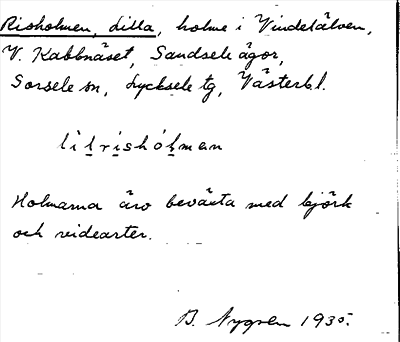 Risholmen, Lilla, holme i Vindelälven,
V. Kabbnäset, Sandsele ägor,
Sorsele sn, Lycksele tg, Västerb.l.
lìlrishólman
Holmarna äro beväxta med björk
och videarter.
B. Nygren 1935.